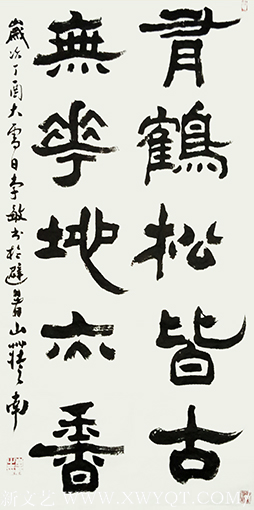 有鶴松皆古
無花地亦香
歲次丁酉大雪日李敏書於避暑山莊之南
新文艺 WWW.XWYQT.COM